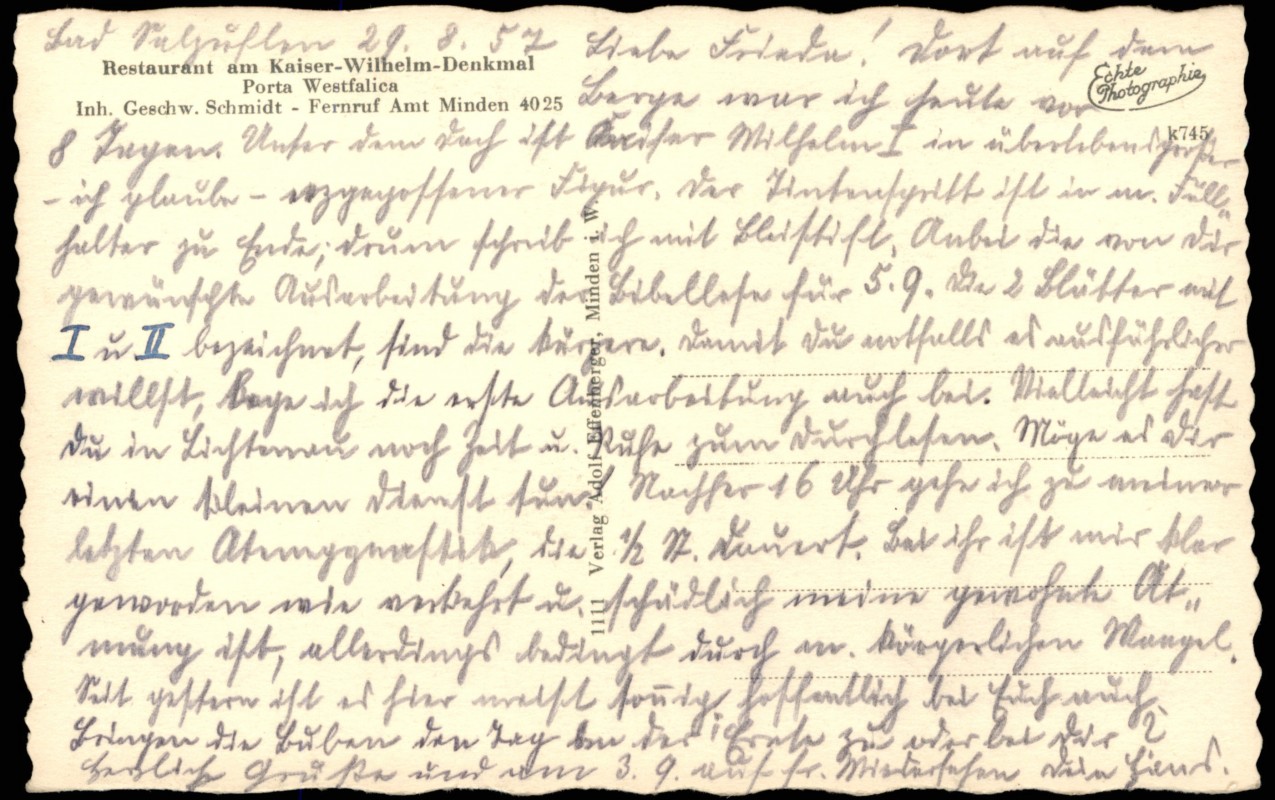 Bad Salzuflen 29. 8. 57
Restaurant am Kaiser-Wilhelm-Denkmal
Porta Westfalica
Inh. Geschw. Schmidt - Fernruf Amt Minden 4025
Echte Photographie
k745
Liebe Frieda! Dort auf dem
Berge war ich heute vor
8 Tagen. Unter dem Dach ist Kaiser Wilhelm I in überlebensgroßer
- ich glaube - erzgegossener Figur. Der Tintenstift ist in m. Füll-
halter zu Ende; drum schreib ich mit Bleistift. Anbei die von Dir
gewünschte Ausarbeitung der Bibellese für 5.9. Die 2 Blätter mit
I u II bezeichnet, sind die kürzere. Damit Du notfalls es ausführlicher
willst, lege ich die erste Ausarbeitung auch bei. Vielleicht hast
Du in Lichtenau noch Zeit u. Ruhe zum Durchlesen. Möge es Dir
einen kleinen Dienst tun. Nachher 16 Uhr gehe ich zu meiner
letzten Atemgymnastik, die 1/2 St. dauert. Bei ihr ist mir klar
geworden wie verkehrt u. schädlich meine gewohnte At-
mung ist, allerdings bedingt durch m. körperlichen Mangel.
Seit gestern ist es hier meist sonnig, hoffentlich bei Euch auch.
Bringen die Buben den Tag in der Ernte zu oder bei Dir?
Herzliche Grüße und am 3. 9. auf fr. Wiedersehen Dein Hans.
1111 Verlag Adolf Effenberger, Minden i. W.